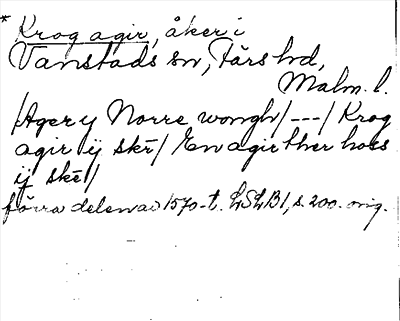 * Krog agir, åker i
Vanstads sn, Färs hd,
Malm. l.
/Ager y Norre wongh/---/Krog
agir ij skē/ En agir ther hoes
ij skē/
förra delen av 1570-t. LSLB1, s. 200. orig.